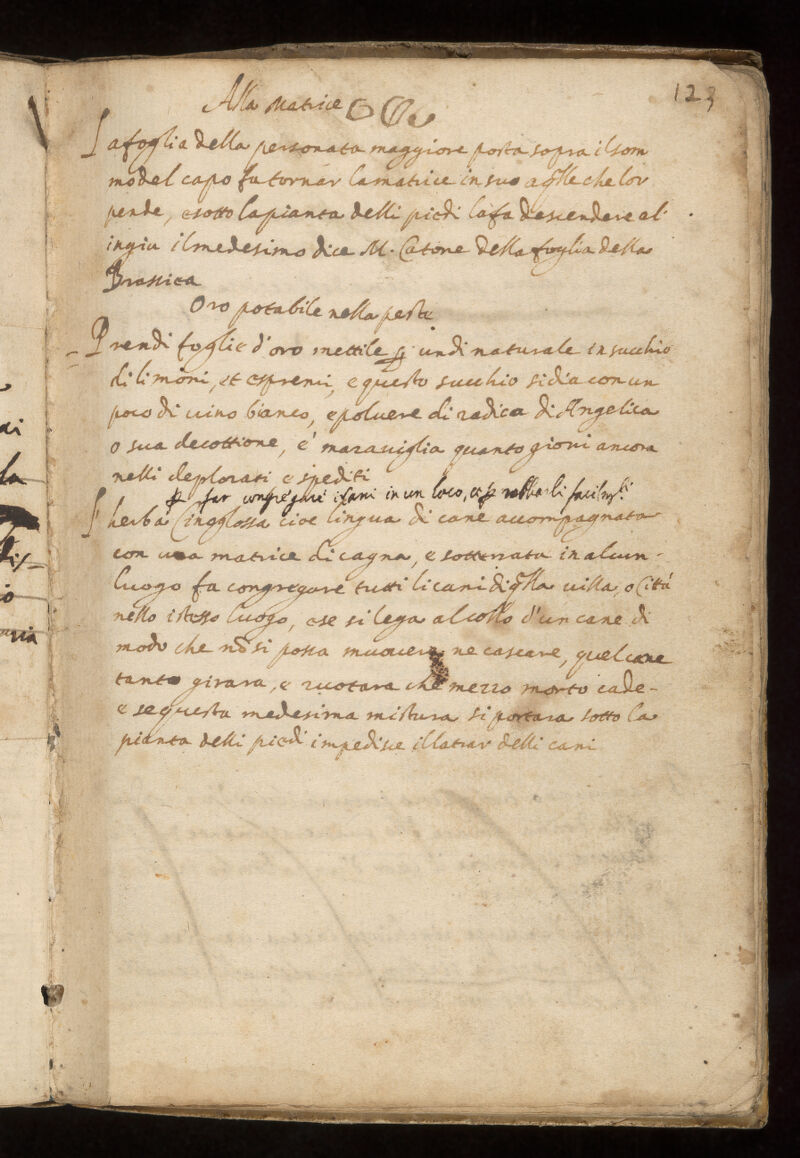 123
Alla Matrice
La foglia della personata maggiore posta sopra il som
mo del capo fa tornar la matrice in suo a qlle che lor
pende, e sotto la pianta delli piedi la fa descendere al
ingiu il medesimo dice M. Catone della foglia della
Brassica
Oro potabile nella peste
Prendi foglie d'oro mettile p un di naturale in succhio
di limoni, et espremi, e questo succhio si dia con un
poco di vino bianco, e polvere di radica di Angelica
o sua decottione, é maraviglia quanto giovi ancora
nelli deplorati e spediti
p far congregare i cani in un loco, e p
L'herba Cinoglossa cioe lingua di cane accompagnata
con una matrice di cagna, e sotterrata in alcun
luogo fa congregare tutti li cani di qlla villa, o Cittá
nello istesso luogo, e se si lega al collo d'un cane di
modo che nō si possa muovere ne cascare, quel cane
tanto girara, e ruotara che mezzo morto cade-
e se questa medesima mistura si portara sotto la
pianta delli piedi impedisce il latrar delli cani